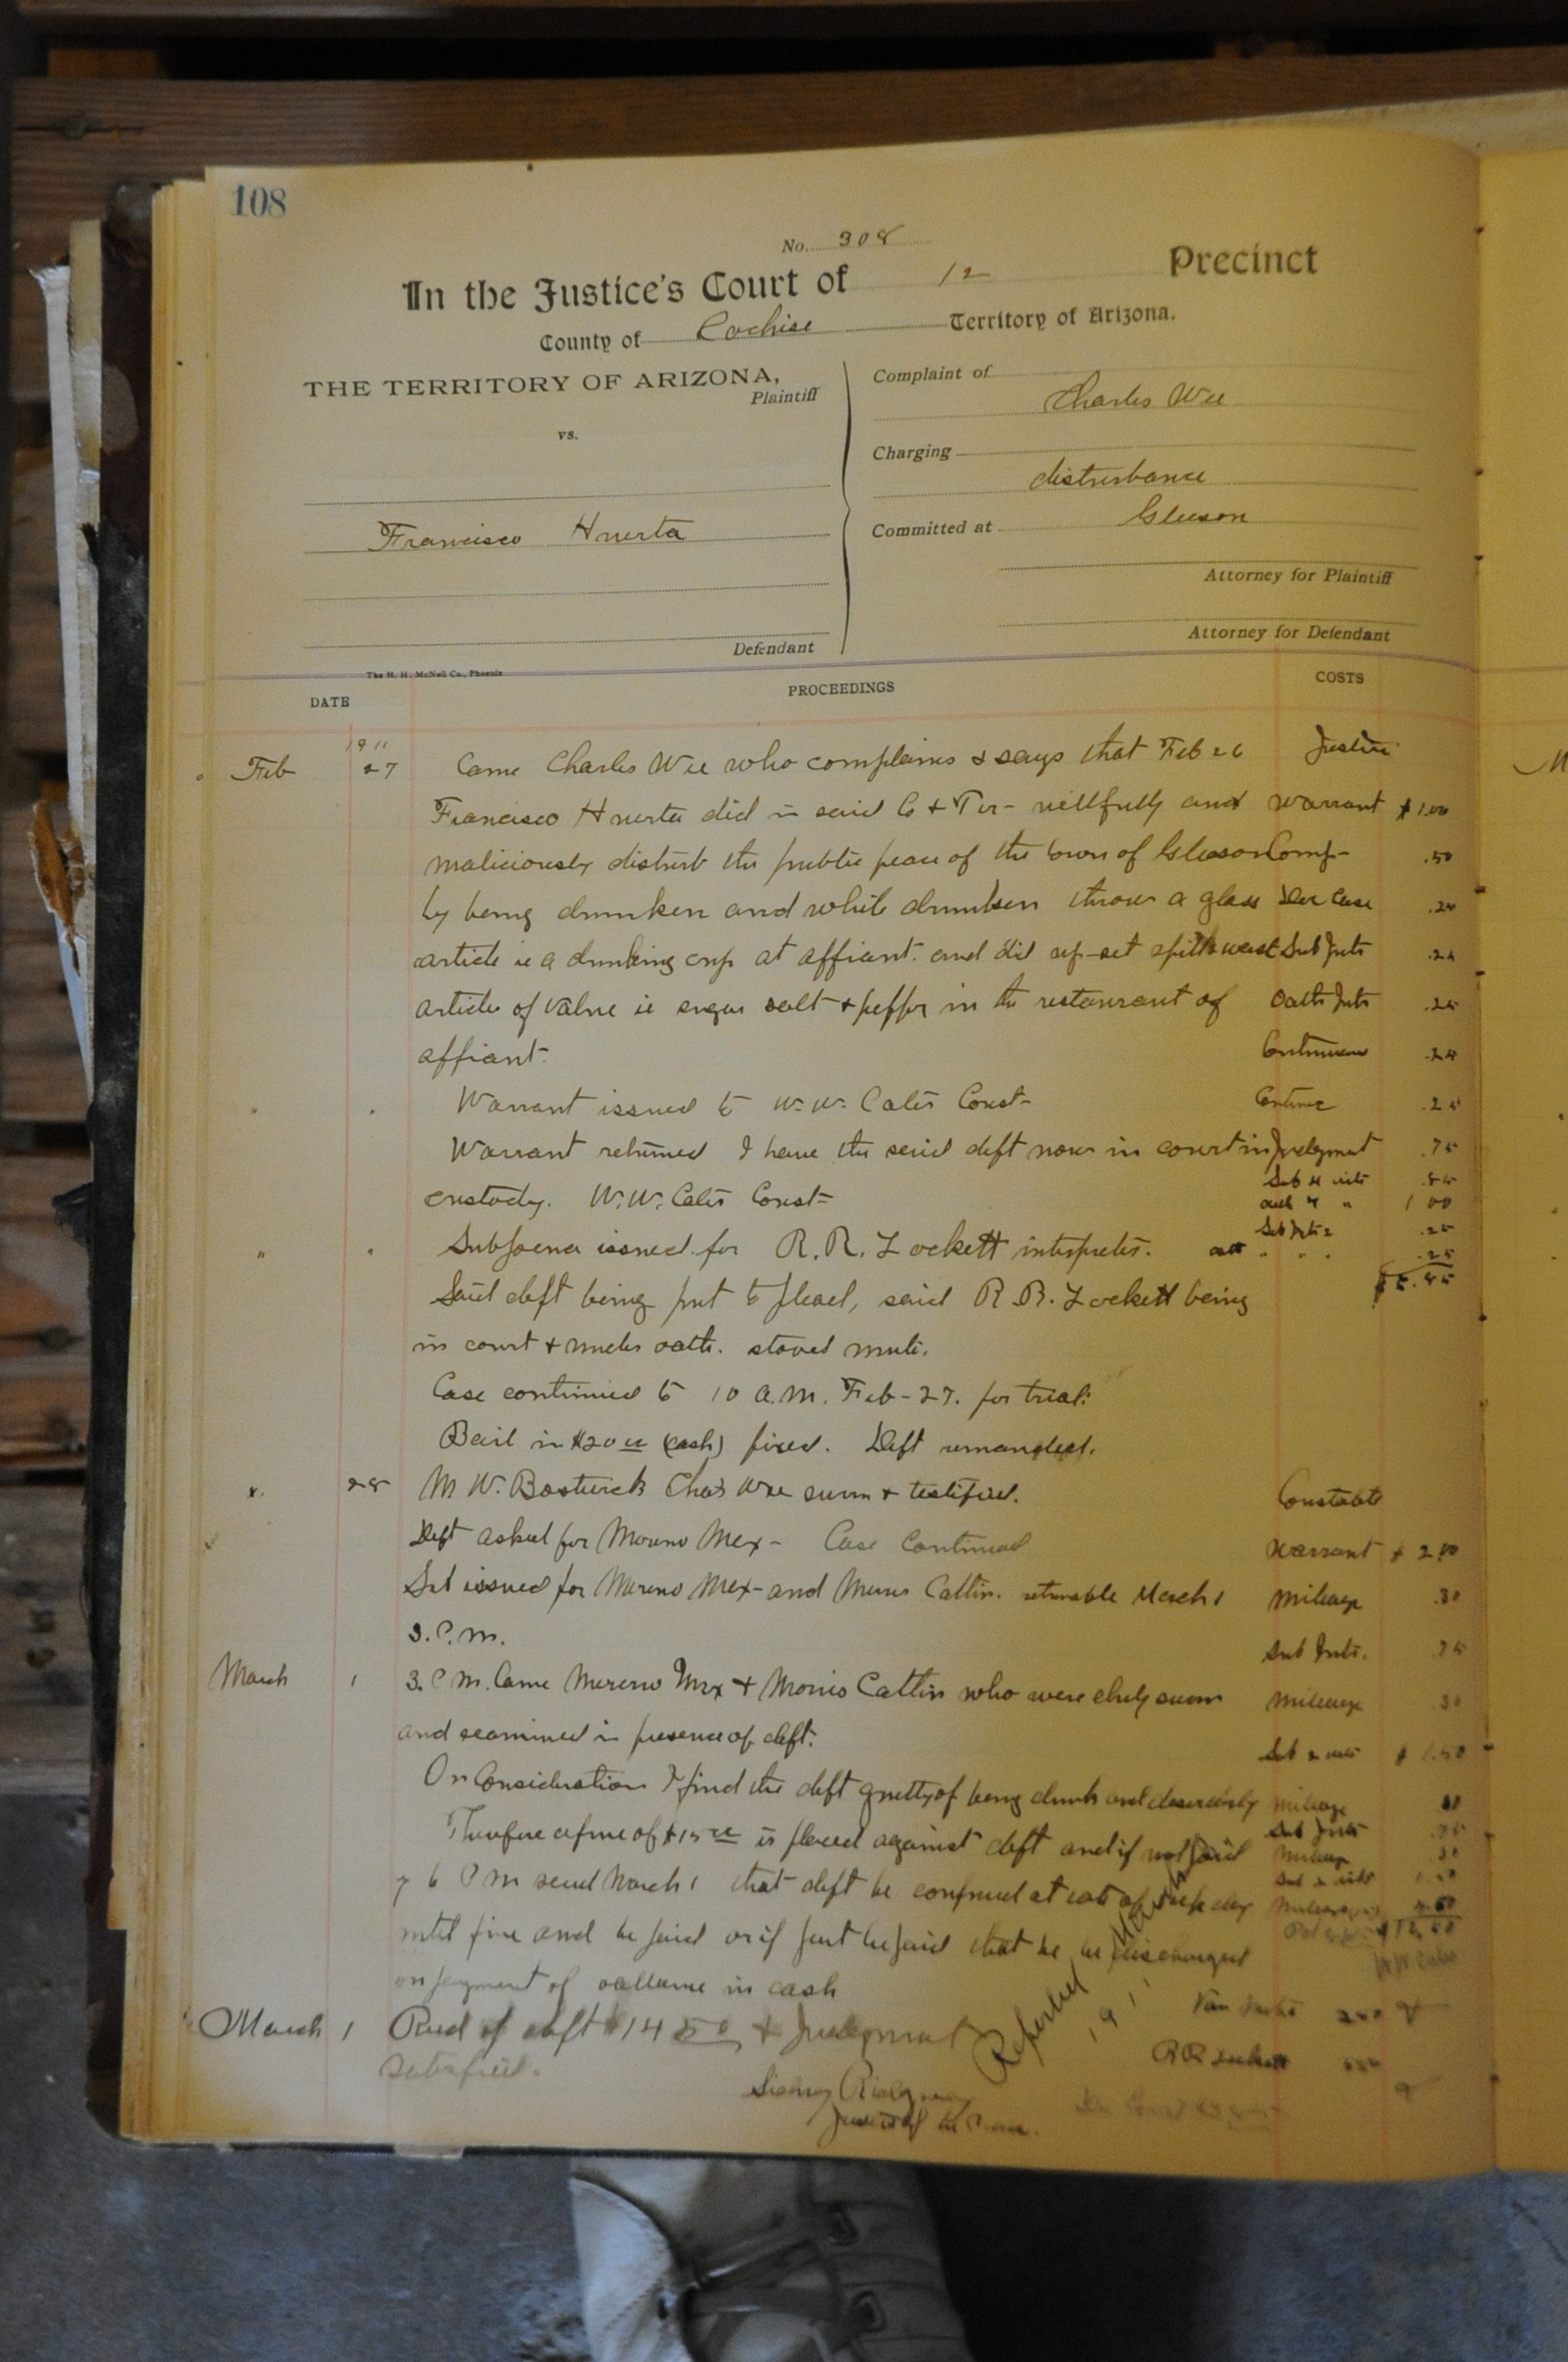 108
No. 308
In the Justice's Court of 12 Precinct
County of Cochise Territory of Arizona.
THE TERRITORY OF ARIZONA,
Plaintiff
vs.
Francisco Huerta
Defendant
Complaint of
Charles Wee
Charging
disturbance
Committed at Gleeson
Attorney for Plaintiff
Attorney for Defendant
The H. H. McNeil Co., Phoenix
DATE PROCEEDINGS COSTS
1911
Feb 27 Came Charles Wee who complains & says that Feb 26 Justice
Francisco Huerta did in said Co & Ter- willfully and Warrant $1.00
maliciously disturb the public peace of the town of Gleeson Comp- .50
by being drunken and while drunken throw a glass Doc Case .20
article ie a drinking cup at affiant. and did up-set spill & waste Sub Intr .25
articles of value ie sugar salt & pepper in the restaurant of Oath Intr .25
affiant. Continuance .25
" " Warrant issued to W. W. Cates Const- Continue .25
Warrant returned I have the said deft now in court in Judgment .75
custody. W. W. Cates Const- Sub 4 wits
oath 4 " 1 00
Sub Intr 2 .25
" " Subpoena issued for R. R. Lockett interpreter. oath " " " .25
Said deft being put to plead, said R. R. Lockett being
in court & under oath. stood mute.
Case continued to 10 a.m. Feb-27. for trial.
Bail in $20 00 (cash) fixed. Deft remanded.
" 28 M W. Bostwick Chas Wee sworn & testified. Constable
Deft asked for Moreno Mex- Case Continued Warrant $ 2 00
Sub issued for Moreno Mex- and Morris Catlin. returnable March 1 Mileage .30
3. P. m. Sub Intr. .75
March 1 3. P m. Came Moreno Mex & Morris Catlin who were duly sworn Mileage .30
and examined in presence of deft. Sub 2 wits $ 1.50
On Consideration I find the deft guilty of being drunk and disorderly Mileage
Sub Intr .75
Therefore a fine of $15 00 is placed against deft and if not paid Mileage .30
Sub 2 wits
6 P m said March 1 that deft be confined at rate of per day Mileage
until fine and be paid or if part be paid that he be discharged
on payment of in cash
March 1 Recd of deft $14 50 & Judgment
satisfied.
Reported 1911
R R Lockett
Sidney Ridgway
Justice of the Peace.